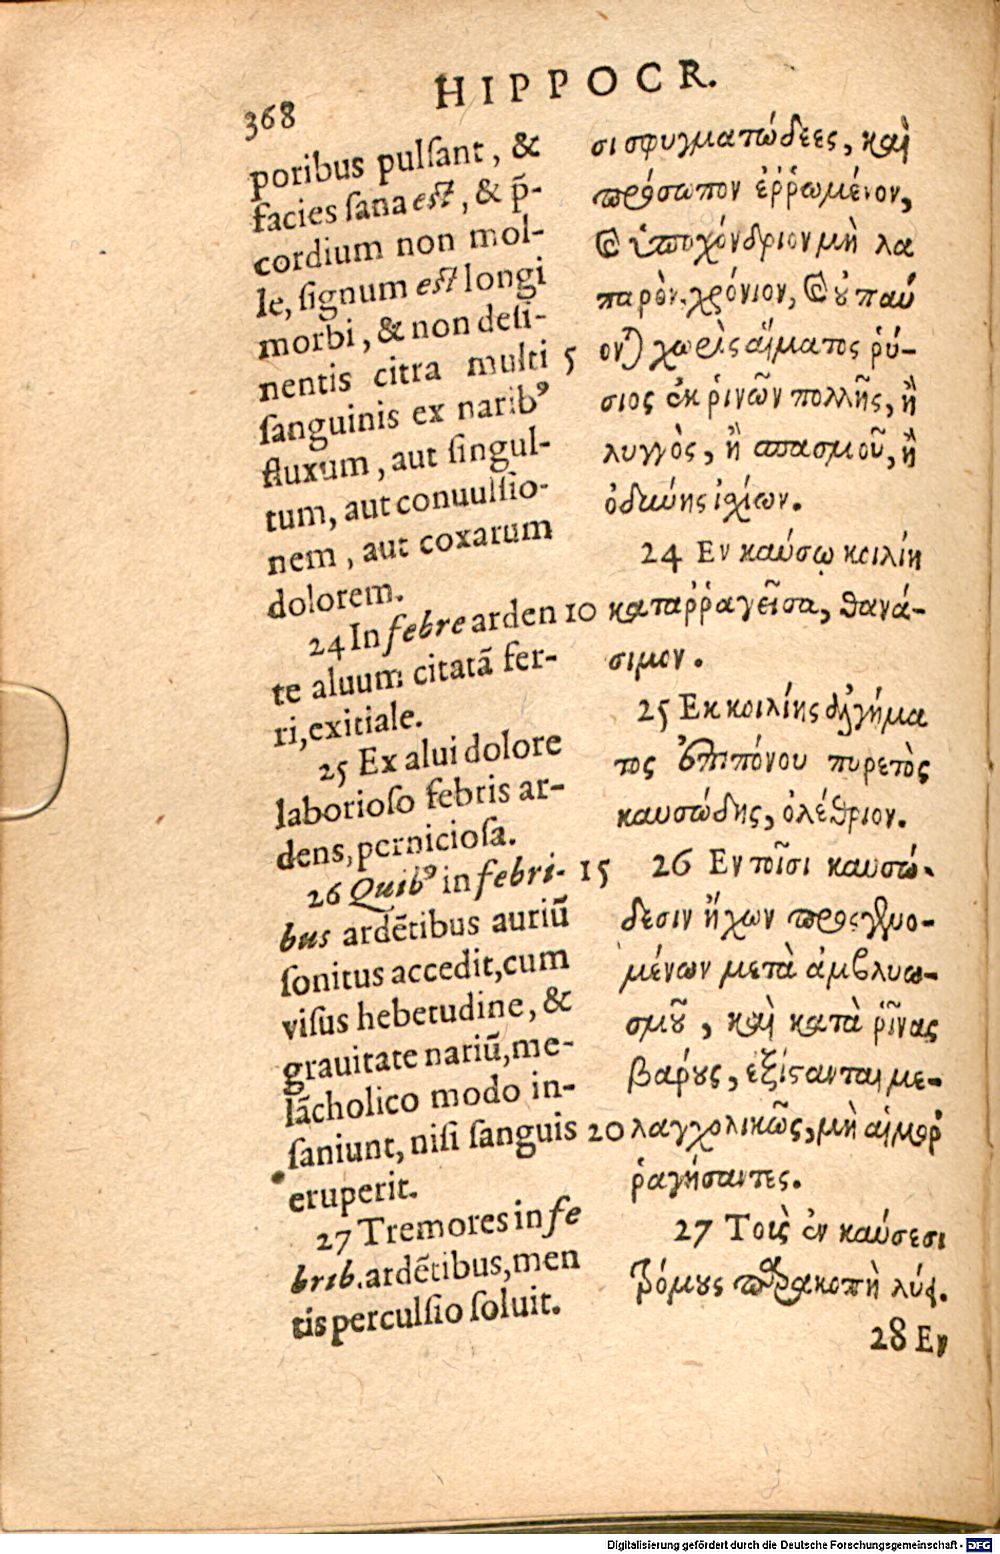 368
HIPPOCR.
poribus pulſant, &
facies ſana eſt, & p̃-
cordium non mol-
le, ſignum eſt longi
morbi, & non deſi-
nentis citra multi
ſanguinis ex narib⁹
fluxum, aut ſingul-
tum, aut conuulſio-
nem, aut coxarum
dolorem.
24 In febre arden
te aluum citatã fer-
ri, exitiale.
25 Ex alui dolore
laborioſo febris ar-
dens, pernicioſa.
26 Quib⁹ in febri-
bus ardẽtibus auriũ
ſonitus accedit, cum
viſus hebetudine, &
grauitate nariũ, me-
lãcholico modo in-
ſaniunt, niſi ſanguis
eruperit.
27 Tremores in fe
brib. ardẽtibus, men
tis perculſio ſoluit.
5
10
15
20
σι σφυγματώδεες, καὶ
πρόσωπον ἐῤῥωμένον,
καὶ ὑποχόνδριον μὴ λα
παρὸν, χρόνιον, καὶ οὐ παύ
ονται χωρὶς αἵματος ῥύ-
σιος ἐκ ῥινῶν πολλῆς, ἢ
λυγγὸς, ἢ σπασμοῦ, ἢ
ὀδύνης ἰχίων.
24 Εν καύσῳ κοιλίη
καταῤῥαγεῖσα, θανά-
σιμον.
25 Εκ κοιλίης ἀλγήμα
τος ἐπιπόνου πυρετὸς
καυσώδης, ὀλέθριον.
26 Εν τοῖσι καυσώ-
δεσιν ἤχων προςγενο-
μένων μετὰ ἀμβλυω-
σμοῦ, καὶ κατὰ ῥῖνας
βαρύος, ἐξίστανται με-
λαγχολικῶς, μὴ αἱμοῤ
ῥαγήσαντες.
27 Τοὺς ἐν καύσεσι
τρόμους παρακοπὴ λύει.
28 Εν
Digitalisierung gefördert durch die Deutsche Forschungsgemeinschaft - DFG